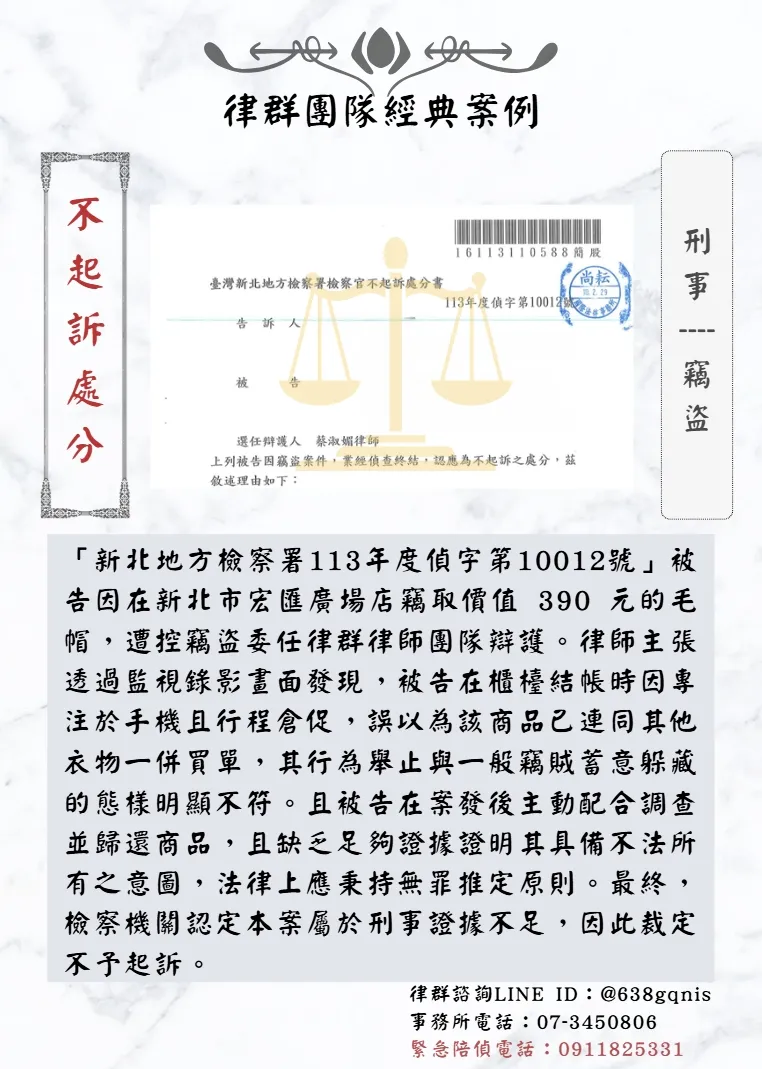 律群團隊經典案例
不起訴處分
刑事----竊盜
16113110588簡股
臺灣新北地方檢察署檢察官不起訴處分書
113年度偵字第10012號
尚耘
告訴人
被告
選任辯護人 蔡淑媚律師
上列被告因竊盜案件，業經偵查終結，認應為不起訴之處分，茲
敘述理由如下：
「新北地方檢察署113年度偵字第10012號」被
告因在新北市宏匯廣場店竊取價值 390 元的毛
帽，遭控竊盜委任律群律師團隊辯護。律師主張
透過監視錄影畫面發現，被告在櫃檯結帳時因專
注於手機且行程倉促，誤以為該商品已連同其他
衣物一併買單，其行為舉止與一般竊賊蓄意躲藏
的態樣明顯不符。且被告在案發後主動配合調查
並歸還商品，且缺乏足夠證據證明其具備不法所
有之意圖，法律上應秉持無罪推定原則。最終，
檢察機關認定本案屬於刑事證據不足，因此裁定
不予起訴。
律群諮詢LINE ID：@638gqnis
事務所電話：07-3450806
緊急陪偵電話：0911825331